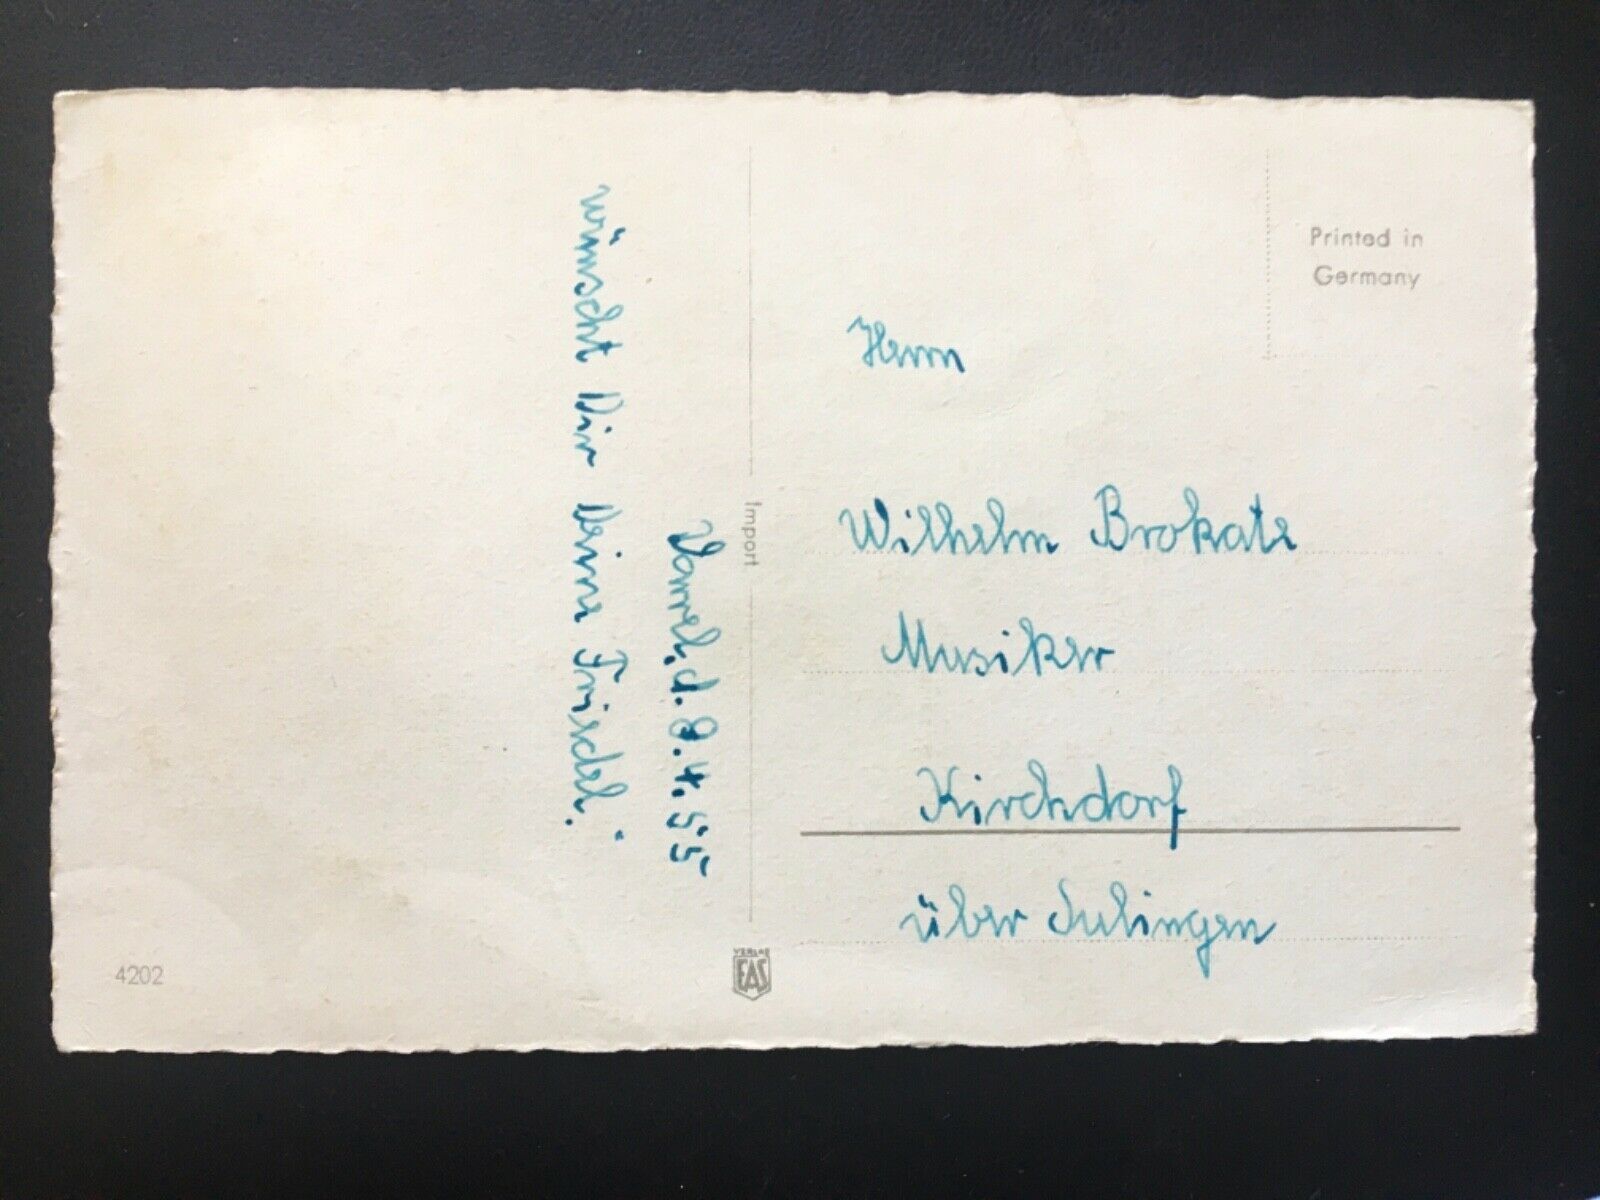 Varrel, d. 8.4.55
wünscht Dir Deine Friedel.
Import
Printed in
Germany
Herrn
Wilhelm Brokate
Musiker
Kirchdorf
über Sulingen
4202
VERLAG
EAS